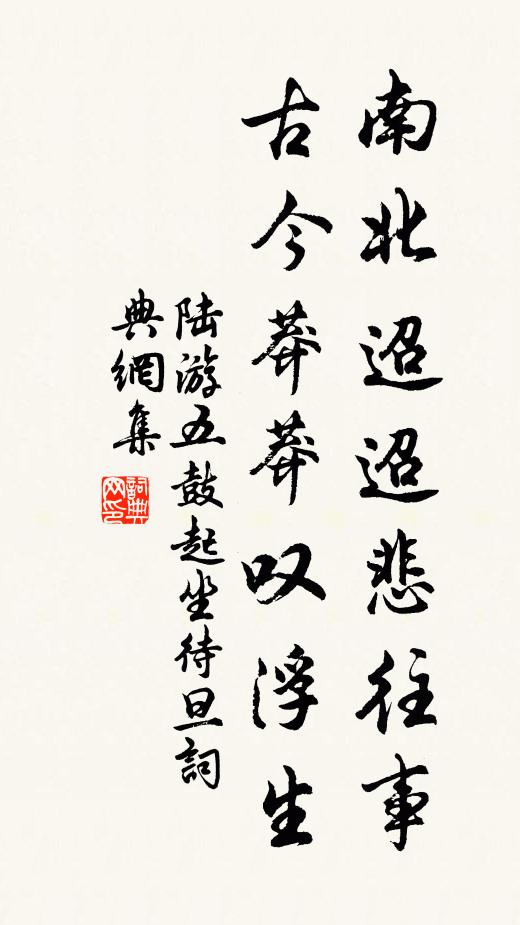 南北迢迢悲往事
古今莽莽叹浮生
陆游五鼓起坐待旦詞
典網集
詞典网印